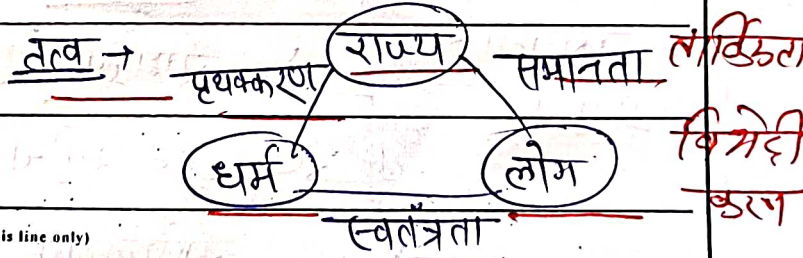 तत्व → पृथक्करण राज्य समानता तार्किकता
धर्म लोग विभेदी
करण
स्वतंत्रता
is line only)